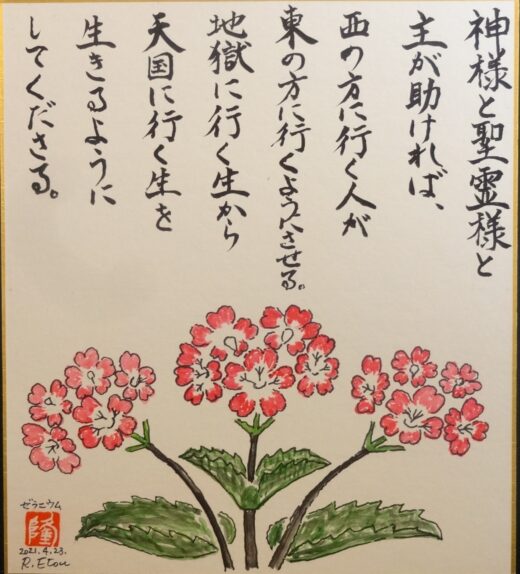 神様と聖霊様と
主が助ければ、
西の方に行く人が
東の方に行くようにさせる。
地獄に行く生から
天国に行く生を
生きるように
してくださる。
ぜラニウム
隆
2021.4.23.
R.Etou